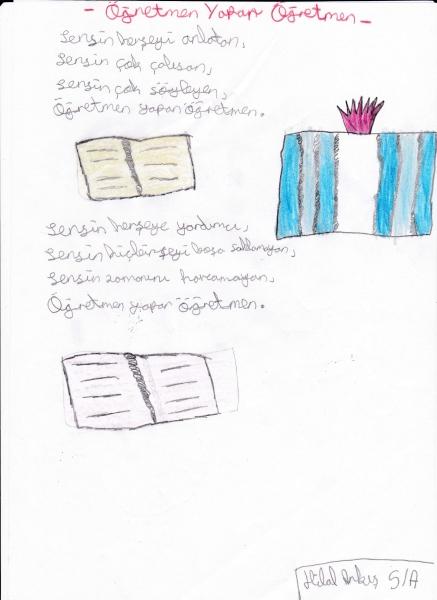 - Öğretmen Yapan Öğretmen -
Sensin herşeyi anlatan,
Sensin çok çalışan,
Sensin çok söyleyen,
Öğretmen yapan öğretmen.
Sensin herşeye yardımcı,
Sensin hiçbirşeyi boşa saklamayan,
Sensin zamanını harcamayan,
Öğretmen yapan öğretmen.
Hilal 5/A